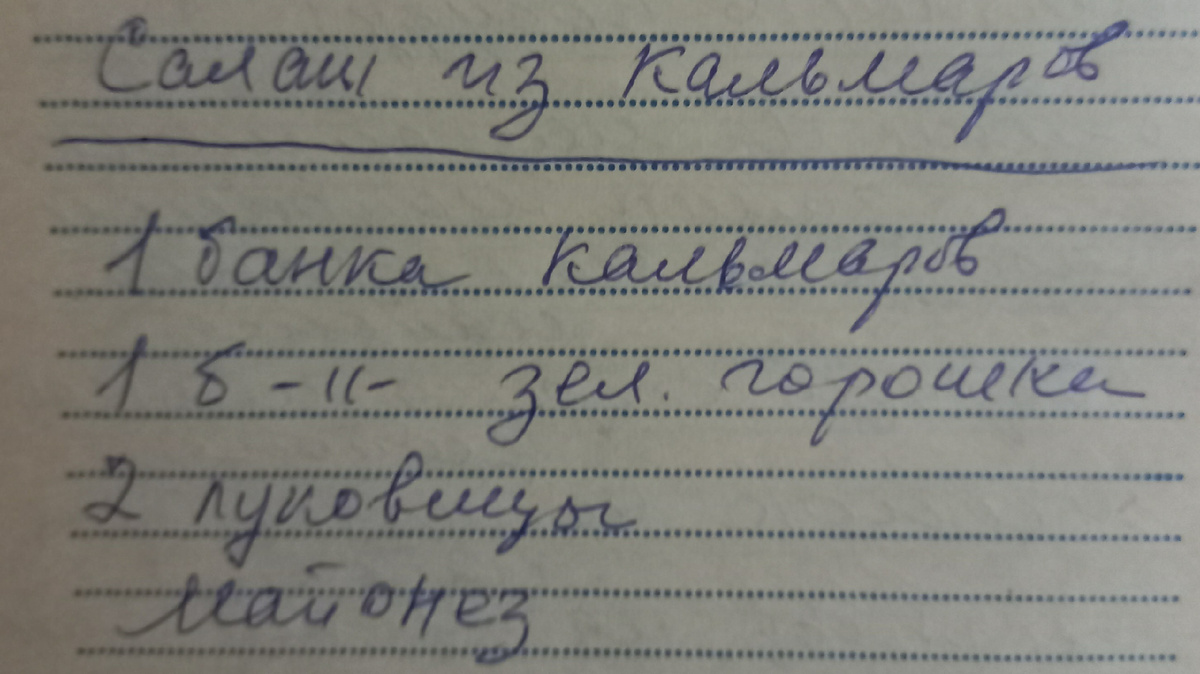 Салат из кальмаров
1 банка кальмаров
1 б -||- зел. горошка
2 луковицы
майонез